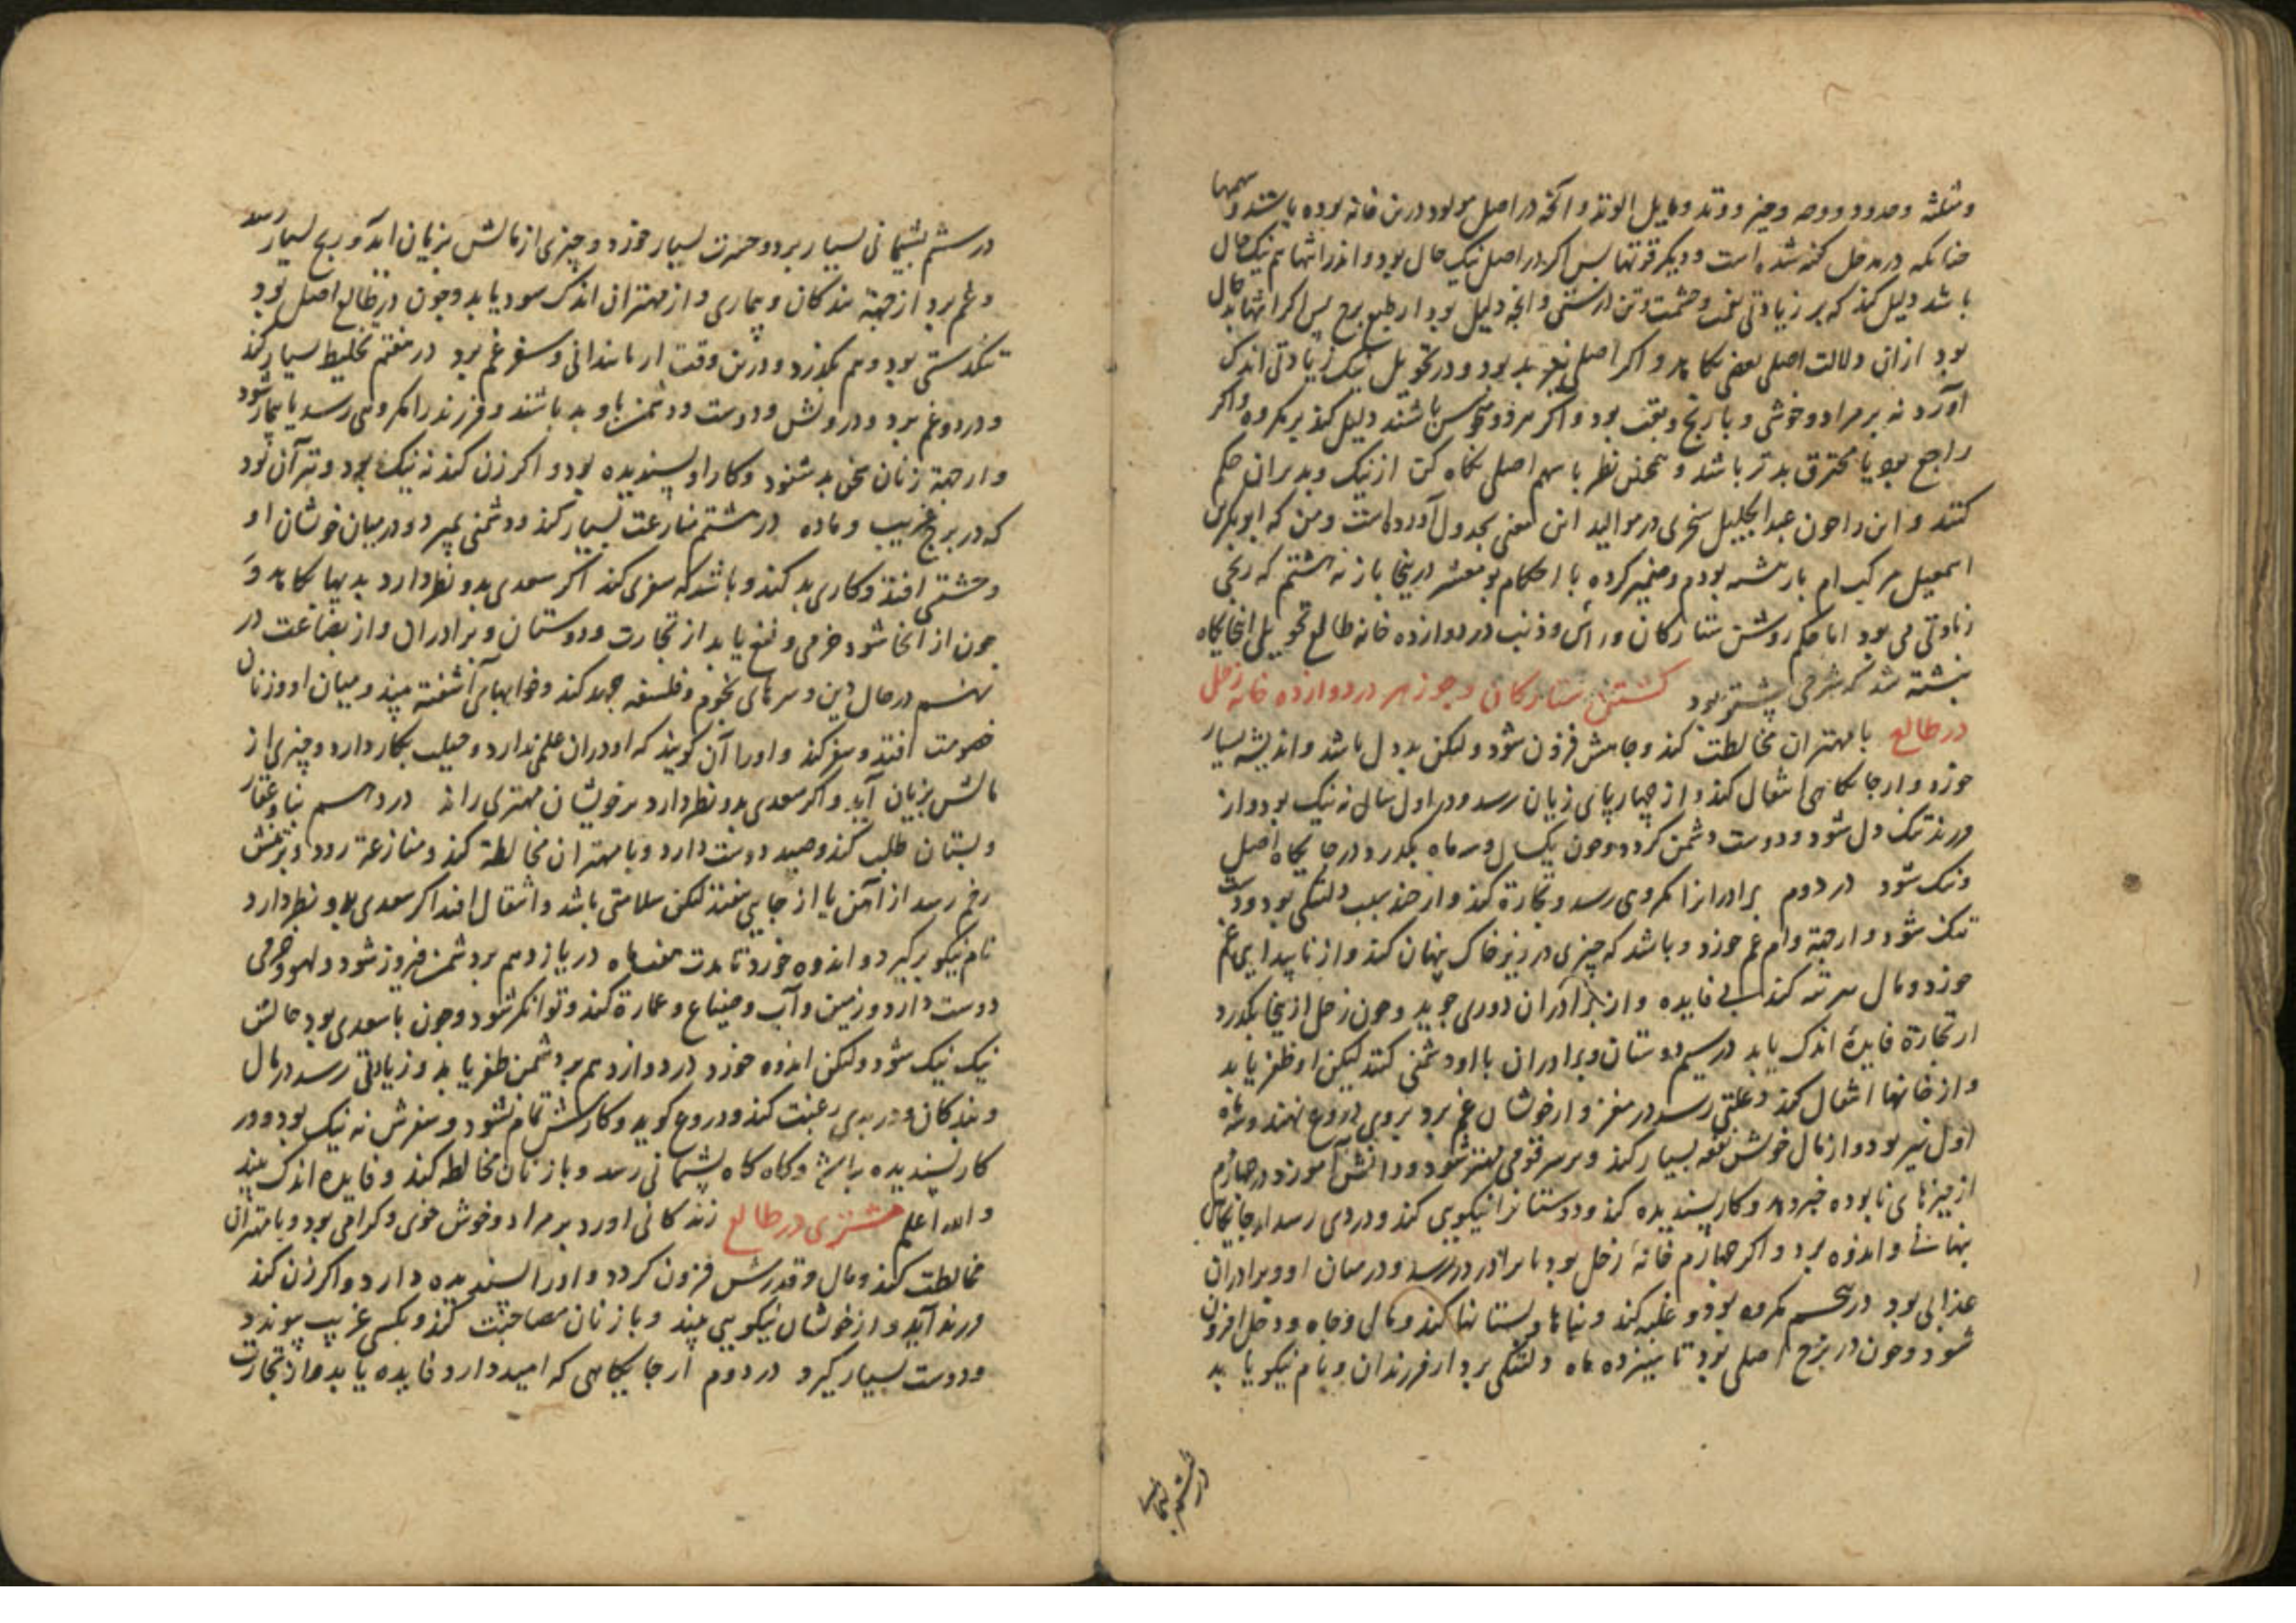 ومثلثه وحدود ووجه وحیز ووتد ومایل الوتد وآنچه در اصل مولود درین خانه بوده باشند وسهمها
چنانکه در مدخل گفته شده است ودیگر قوتها پس اگر در اصل نیک حال بود واندر انتها هم نیک حال
باشد دلیل کند که بر زیادتی نعمت وحشمت وتن درستی وآنچه دلیل بود از طبع برج پس اگر انتها بد حال
بود از آن دلالت اصلی بعضی بکاهد واگر اصلی نیز بد بود ودر تحویل نیک زیادتی اندک
آورد نه بر مراد وخوشی وبا رنج وتعب بود واگر هر دو منحوس باشند دلیل کند بر مکروه واگر
راجع بود یا محترق بدتر باشد وهمچنین نظر با سهم اصلی نگاه کن از نیک وبد بران حکم
کنند و این را چون عبد الجلیل سجزی در موالید این معنی بجدول آورده است ومن که ابو بکر بن
اسمعیل
زیادتی می بود اما حکم روشن ستارگان وراس وذنب در دوازده خانه طالع تحویل اینجایگاه
نبشته شد که شرحی بیشتر بود گشتن ستارگان وجوزهر در دوازده خانه زحل
در طالع با مهتران مخالطت کند وجاهش فزون شود ولیکن بددل باشد واندیشه بسیار
خورد واز جایگاهی انتقال کند واز چهارپای زیان رسد ودر اول سال نه نیک بود واز
فرزند تنگ دل شود ودوست دشمن گردد وچون یک سال وسه ماه بگذرد در جایگاه اصلی
ونیک شود در دوم برادران را مکروهی رسد وتجارة کند واز ضد سبب دلتنگی بود ودست
تنگ شود واز جهة وام غم خورد وباشد که چیزی در زیر خاک پنهان کند واز ناپیدایی غم
خورد ومال هزینه کند بی فایده واز برادران دوری جوید وچون زحل ازینجا بگذرد
از تجارة فایدهٔ اندک یابد در سیم دوستان وبرادران با او دشمنی کنند لیکن او ظفر یابد
واز خانها انتقال کند وعلتی رسد در مغز واز خویشان غم برد بروی دروغ نهند وسه ماه
اول نیز بود واز مال خویش نفقه بسیار کند وبر سر قومی مهتر شود ودانش آموزد در چهارم
از چیزهای نابوده خبر دهد وکار پسندیده کند ودوستان را نیکویی کند ودردی رسد از جایگاهی
پنهانی واندوه برد واگر چهارم خانهٔ زحل بود تا برادر در رسد ودر میان او وبرادران
عذابی بود در پنجم مکروه بود وغلبه کند وبناها وبستانها کند ومال وجاه ودخل افزون
شود وچون در برج اصلی بود تا سیزده ماه دلتنگی برد از فرزندان ونام نیکو یابد
در ششم پشیمانی
در ششم پشیمانی بسیار برد وحسرت بسیار خورد وچیزی از مالش بزیان آید ورنج بسیار رسد
وغم برد از جهة بندگان وبیماری واز مهتران اندک سود یابد وچون در طالع اصل بود
تنگدستی بود وهم بگذرد ودرین وقت از نابندانی وسفر غم برد در هفتم تخلیط بسیار کند
ودرد وغم برد ودرویش ودوست ودشمن با وی بد باشند وفرزند را مکروهی رسد یا بیمار شود
واز جهة زنان سخن بد شنود وکار او پسندیده بود واگر زن کند نه نیک بود وبتر آن بود
که در برج غریب وماده در هشتم منازعت بسیار کند ودشمنی بمیرد ودر میان خویشان او
وحشتی افتد وکاری بد کند وباشد که سفری کند اگر سعدی بدو نظر دارد بدیها بکاهد و
چون از آنجا شود خرمی ونفع یابد از تجارت ودوستان وبرادران واز بضاعت در
نهم در حال دین وسرهای نجوم وفلسفه جهد کند وخوابهای آشفته بیند ومیان او وزنان
خصومت افتد وسفر کند واورا آن گویند که او در آن علمی ندارد وحیلت بکار دارد وچیزی از
مالش بزیان آید واگر سعدی بدو نظر دارد بر خویشان مهتری راند در دهم بنا وعقار
وبستان طلب کند وصید دوست دارد وبا مهتران مخالطه کند ومنازعة رود وبر تنش
زخم رسد از آهن یا از جایی بیفتد لیکن سلامتی باشد وانتقال افتد اگر سعدی بدو نظر دارد
نام نیکو برگیرد واندوه خورد تا مدت هفت ماه در یازدهم بر دشمن فیروز شود ولهو وخرمی
دوست دارد وزمین وآب وضیاع وعمارة کند وتوانگر شود وچون با سعدی بود حالش
نیک نیک شود ولیکن اندوه خورد در دوازدهم بر دشمن ظفر یابد وزیادتی رسد در مال
وبندگان ودر بدی رغبت کند ودروغ گوید وکارش تمام نشود وسفرش نه نیک بود ودر
کار پسندیده نباشد وگاه گاه پشیمانی رسد وبا زنان مخالطه کند وفایده اندک بیند
والله اعلم مشتری در طالع زندگانی اورد بر مراد وخوش خوی وگرامی بود وبا مهتران
مخالطت کند ومال وقدرش فزون گردد واورا پسندیده دارد واگر زن کند
فرزند آید واز خویشان نیکویی بیند وبا زنان مصاحبت کند وبکسی غریب پیوندد
ودوست بسیار گیرد در دوم از جایگاهی که امید دارد فایده یابد واز تجارت